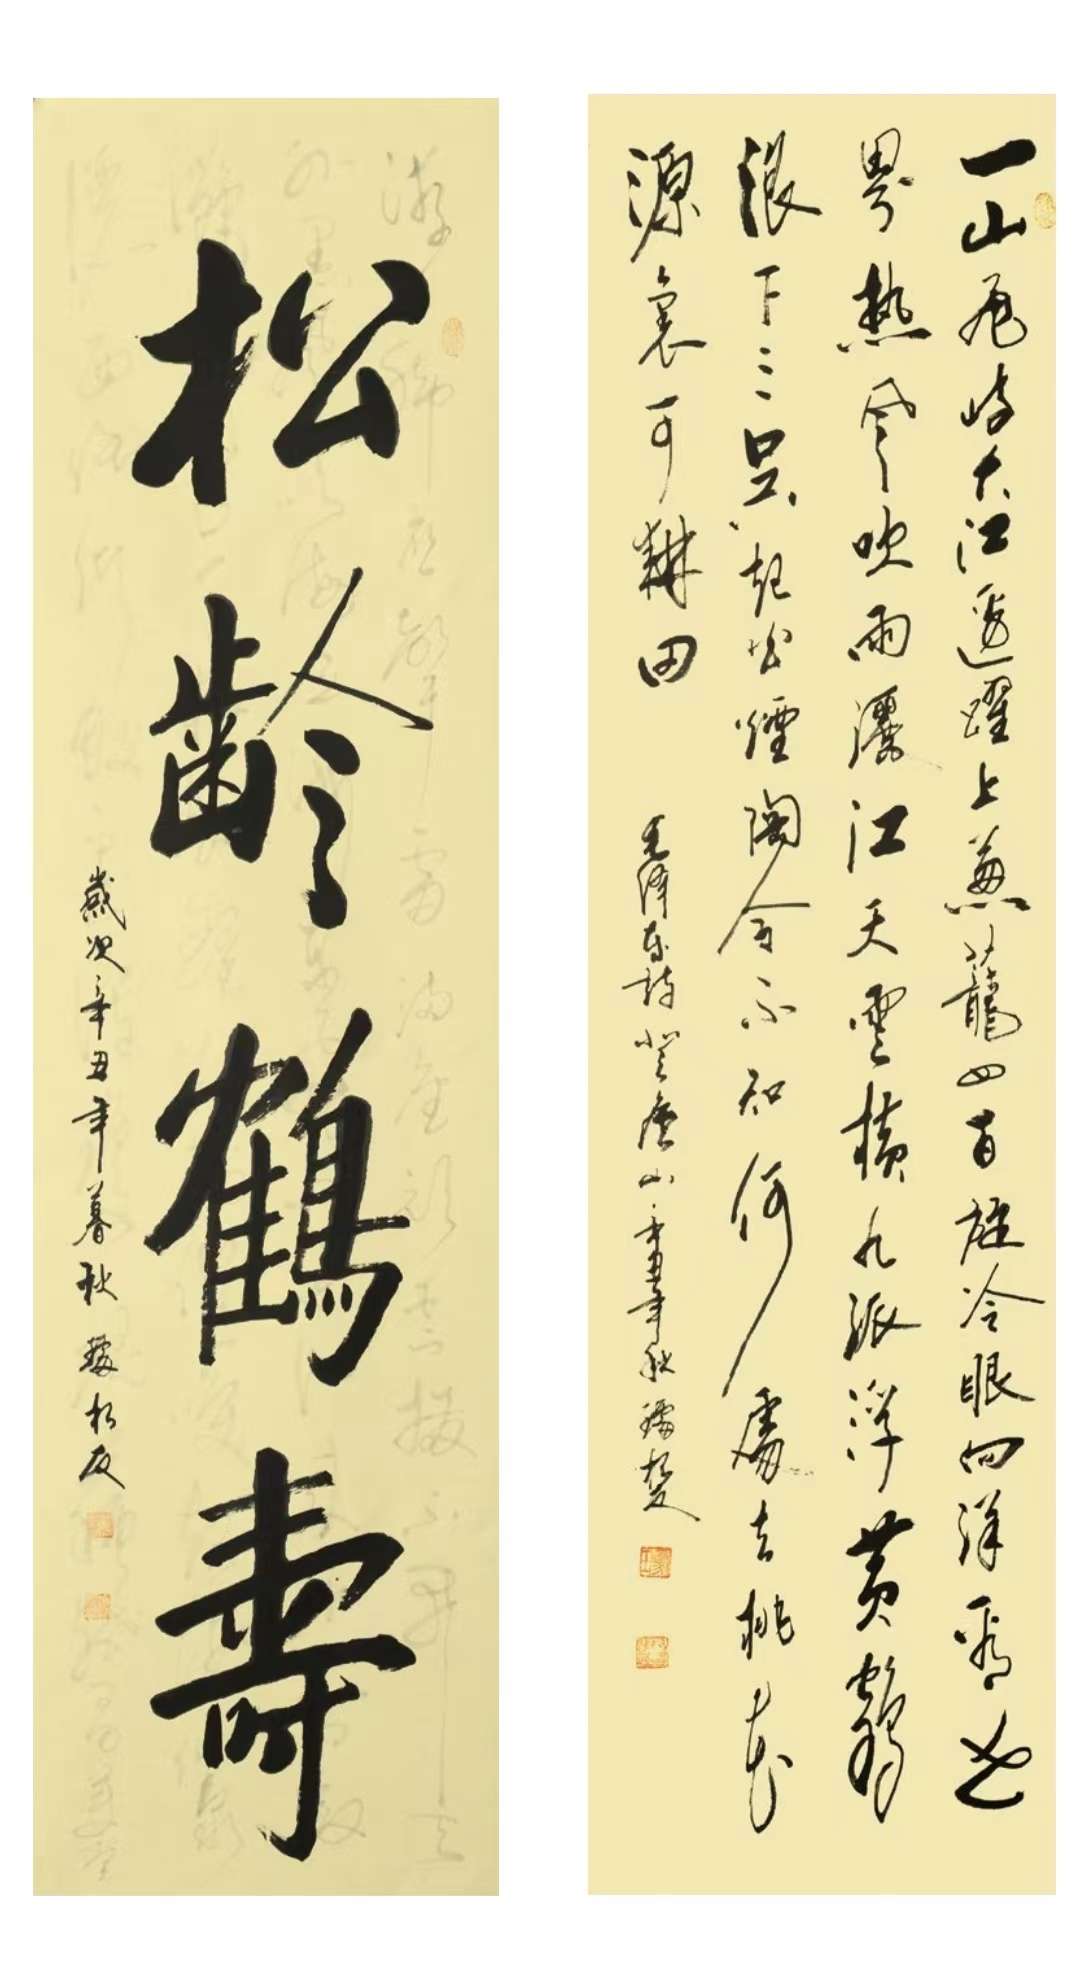 松齡鶴壽
歲次辛丑年暮秋
一山飛峙大江邊躍上葱蘢四百旋冷眼向洋看世
界熱風吹雨灑江天雲橫九派浮黃鶴
浪下三吳起白煙陶令不知何處去桃花
源裏可耕田
毛澤東詩登廬山辛丑年秋